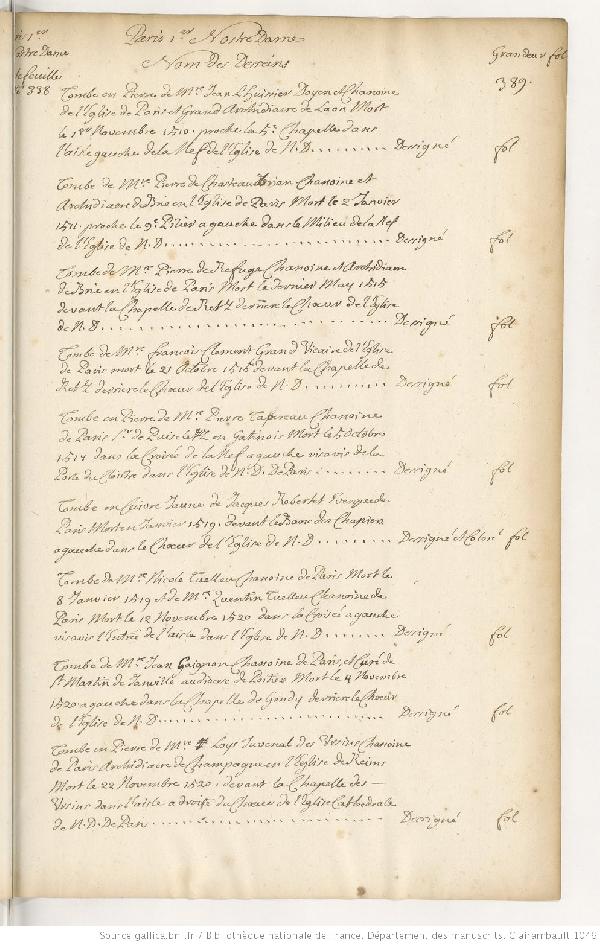 Paris 1er Nostre Dame
Nom Des Desseins
Grandeur fol
389.
338
Tombe en Pierre de Mre Jean Lhuisier Doyen et Chanoine
de l'Eglise de Paris et Grand Archidiacre de Laon Mort
le 1er Novembre 1510. proche la 5e Chapelle dans
l'aisle gauche de la Nef de l'Eglise de N.D. Dessigné fol
Tombe de Mre Pierre de Chasteau Brian Chanoine et
Archidiacre de Brie en l'Eglise de Paris Mort le 2 Janvier
1511. proche le 9e Pilier a gauche dans le Milieu de la Nef
de l'Eglise de N.D. Dessigné fol
Tombe de Mre Pierre de Refuge Chanoine et Archidiacre
de Brie en l'Eglise de Paris Mort le dernier May 1515
devant la Chapelle de Retz derriere le Chœur de l'Eglise
de N.D. Dessigné fol
Tombe de Mre francois Clement Grand Vicaire de l'Eglise
de Paris mort le 21 Octobre 1515 devant la Chapelle de
Retz derriere le Chœur de l'Eglise de N.D. Dessigné fol
Tombe en Pierre de Mre Pierre Tapereau Chanoine
de Paris Sr de en Gatinois Mort le 5 Octobre
1517 dans la Croisée de la Nef a gauche vis a vis de la
Porte du Cloistre dans l'Eglise de N.D. De Paris Dessigné fol
Tombe en Cuivre Jaune de Jacques Robertet Evesque de
Paris Mort en Janvier 1519. devant le Banc des Chapiers
a gauche dans le Chœur de l'Eglise de N.D. Dessigné et Coloré fol
Tombe de Mre Nicole Tuelleu Chanoine de Paris Mort le
8 Janvier 1519 et de Mre Quentin Tuelleu Chanoine de
Paris Mort le 12 Novembre 1520 dans la Croisée a gauche
vis a vis l'Entrée de l'aisle dans l'Eglise de N.D. Dessigné fol
Tombe de Mre Jean Gaignon Chanoine de Paris, et Curé de
St Martin de Janville au diocese de Poitiers Mort le 4 Novembre
1520 a gauche dans la Chapelle de Gondy derriere le Chœur
de l'Eglise de N.D. Dessigné fol
Tombe en Pierre de Mre Loys Juvenal des Ursins Chanoine
de Paris Archidiacre de Champagne en l'Eglise de Reims
Mort le 22 Novembre 1520. devant la Chapelle des
Ursins dans l'aisle a droite du Chœur de l'Eglise Cathedrale
de N.D. De Paris Dessigné fol
Source gallica.bnf.fr / Bibliothèque nationale de France. Département des manuscrits. Clairambault 1046